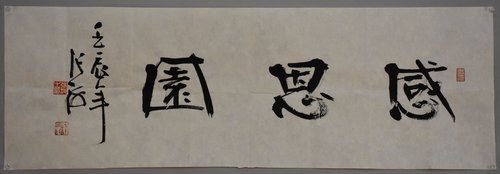 感恩園
壬辰年